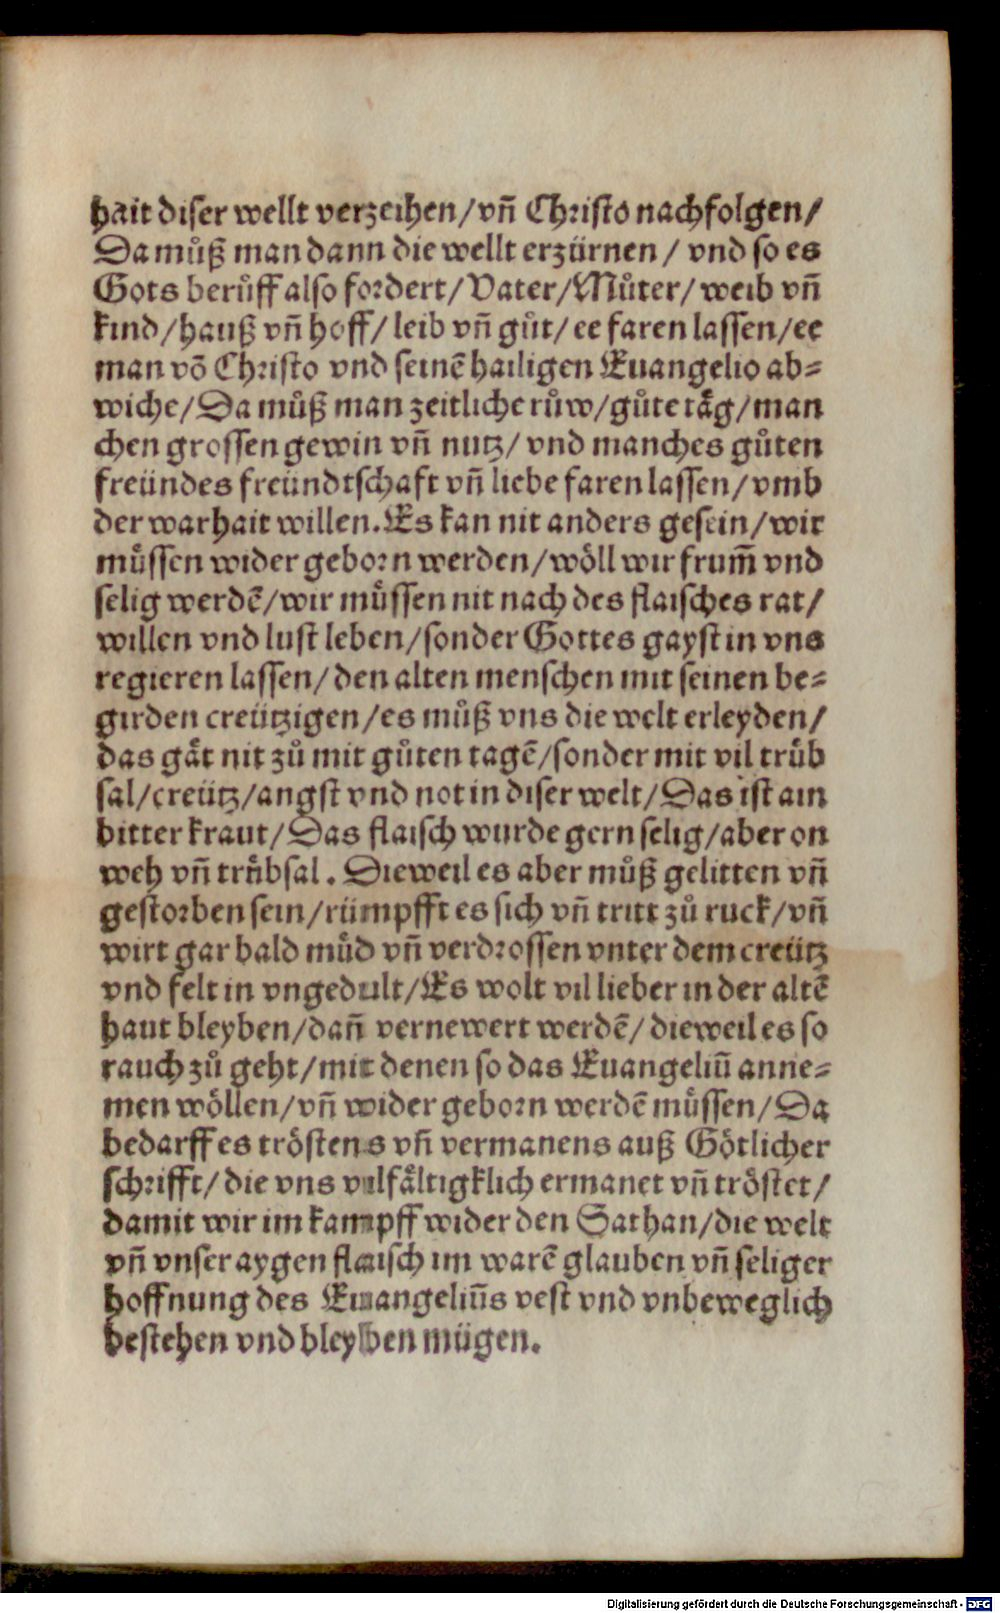 hait diser wellt verzeihen/vñ Christo nachfolgen/
Da můß man dann die wellt erzürnen/ vnd so es
Gots berůff also fordert/Vater/Můter/ weib vñ
kind/hauß vñ hoff/ leib vñ gůt/ ee faren lassen/ee
man võ Christo vnd seinẽ hailigen Euangelio ab=
wiche/Da můß man zeitliche růw/gůte tåg/man
chen grossen gewin vñ nutz/ vnd manches gůten
freündes freündtschaft vñ liebe faren lassen/vmb
der warhait willen.Es kan nit anders gesein/wir
müssen wider geborn werden/wöll wir frum̃ vnd
selig werdẽ/wir müssen nit nach des flaisches rat/
willen vnd lust leben/sonder Gottes gayst in vns
regieren lassen/ den alten menschen mit seinen be=
girden creützigen/es můß vns die welt erleyden/
das gåt nit zů mit gůten tagẽ/sonder mit vil trüb
sal/creütz/angst vnd not in diser welt/Das ist ain
bitter kraut/Das flaisch wurde gern selig/aber on
weh vñ trübsal. Dieweil es aber můß gelitten vñ
gestorben sein/rümpfft es sich vñ tritt zů ruck/vñ
wirt gar bald müd vñ verdrossen vnter dem creütz
vnd felt in vngedult/Es wolt vil lieber in der altẽ
haut bleyben/dañ vernewert werdẽ/ dieweil es so
rauch zů geht/mit denen so das Euangeliũ anne=
men wöllen/vñ wider geborn werdẽ müssen/Da
bedarff es tröstens vñ vermanens auß Götlicher
schrifft/ die vns vilfåltigklich ermanet vñ tröstet/
damit wir im kampff wider den Sathan/die welt
vñ vnser aygen flaisch im warẽ glauben vñ seliger
hoffnung des Euangeliũs vest vnd vnbeweglich
bestehen vnd bleyben mügen.
Digitalisierung gefördert durch die Deutsche Forschungsgemeinschaft - DFG